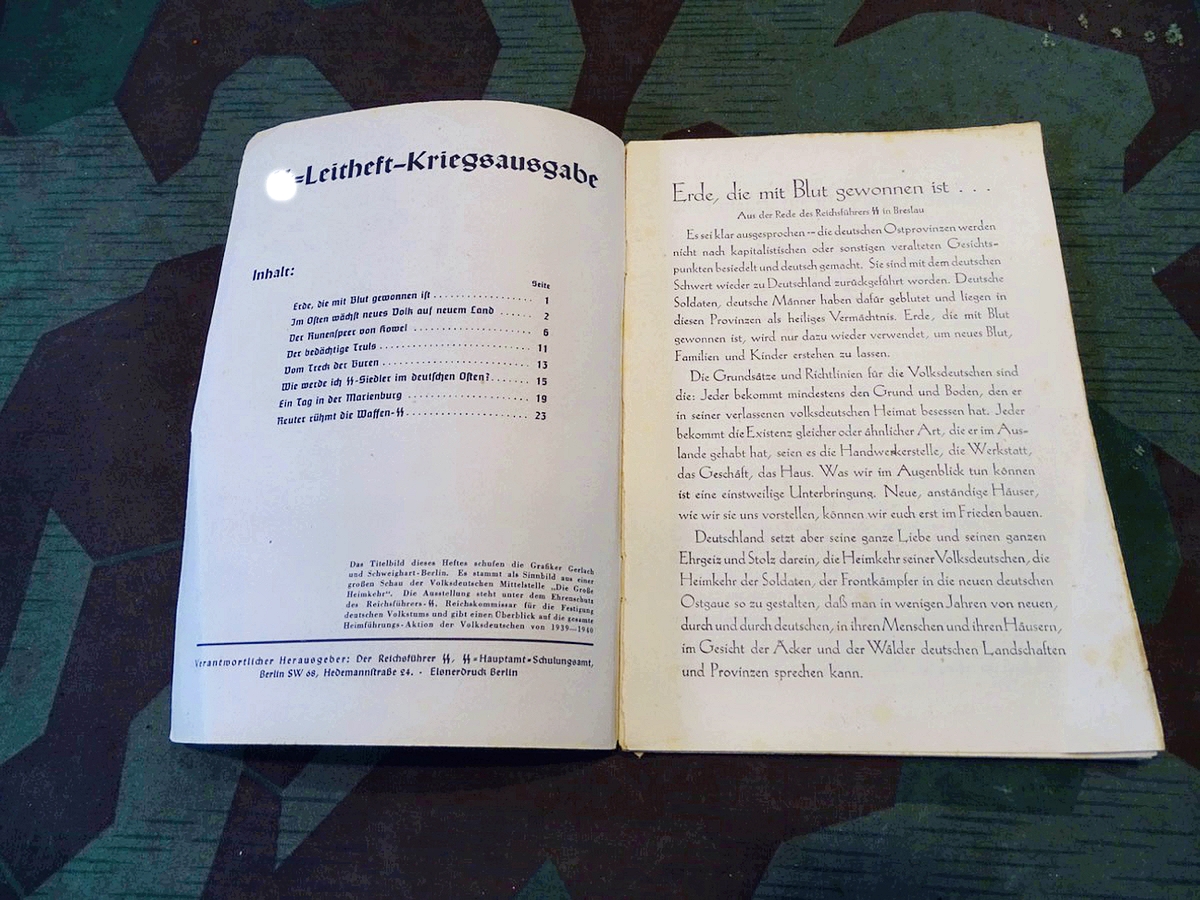 =Leitheft-Kriegsausgabe
Inhalt:
Seite
Erde, die mit Blut gewonnen ist . . . . . . . . . . . . . . . 1
Im Osten wächst neues Volk auf neuem Land . . . . . . 2
Der Runenspeer von Kowel . . . . . . . . . . . . . . . . . . 6
Der bedächtige Truls . . . . . . . . . . . . . . . . . . . . . . . 11
Vom Treck der Buren . . . . . . . . . . . . . . . . . . . . . . . 13
Wie werde ich ᛋᛋ-Siedler im deutschen Osten? . . . . . . . 15
Ein Tag in der Marienburg . . . . . . . . . . . . . . . . . . . 19
Reuter rühmt die Waffen-ᛋᛋ . . . . . . . . . . . . . . . . . . 23
Das Titelbild dieses Heftes schufen die Grafiker Gerlach
und Schweighart-Berlin. Es stammt als Sinnbild aus einer
großen Schau der Volksdeutschen Mittelstelle „Die Große
Heimkehr“. Die Ausstellung steht unter dem Ehrenschutz
des Reichsführers-ᛋᛋ, Reichskommissar für die Festigung
deutschen Volkstums und gibt einen Überblick auf die gesamte
Heimführungs-Aktion der Volksdeutschen von 1939—1940
Verantwortlicher Herausgeber: Der Reichsführer ᛋᛋ, ᛋᛋ=Hauptamt=Schulungsamt,
Berlin SW 68, Hedemannstraße 24. - Elsnerdruck Berlin
Erde, die mit Blut gewonnen ist . . .
Aus der Rede des Reichsführers ᛋᛋ in Breslau
Es sei klar ausgesprochen — die deutschen Ostprovinzen werden
nicht nach kapitalistischen oder sonstigen veralteten Gesichts-
punkten besiedelt und deutsch gemacht. Sie sind mit dem deutschen
Schwert wieder zu Deutschland zurückgeführt worden. Deutsche
Soldaten, deutsche Männer haben dafür geblutet und liegen in
diesen Provinzen als heiliges Vermächtnis. Erde, die mit Blut
gewonnen ist, wird nur dazu wieder verwendet, um neues Blut,
Familien und Kinder erstehen zu lassen.
Die Grundsätze und Richtlinien für die Volksdeutschen sind
die: Jeder bekommt mindestens den Grund und Boden, den er
in seiner verlassenen volksdeutschen Heimat besessen hat. Jeder
bekommt die Existenz gleicher oder ähnlicher Art, die er im Aus-
lande gehabt hat, seien es die Handwerkerstelle, die Werkstatt,
das Geschäft, das Haus. Was wir im Augenblick tun können
ist eine einstweilige Unterbringung. Neue, anständige Häuser,
wie wir sie uns vorstellen, können wir euch erst im Frieden bauen.
Deutschland setzt aber seine ganze Liebe und seinen ganzen
Ehrgeiz und Stolz darein, die Heimkehr seiner Volksdeutschen, die
Heimkehr der Soldaten, der Frontkämpfer in die neuen deutschen
Ostgaue so zu gestalten, daß man in wenigen Jahren von neuen,
durch und durch deutschen, in ihren Menschen und ihren Häusern,
im Gesicht der Äcker und der Wälder deutschen Landschaften
und Provinzen sprechen kann.